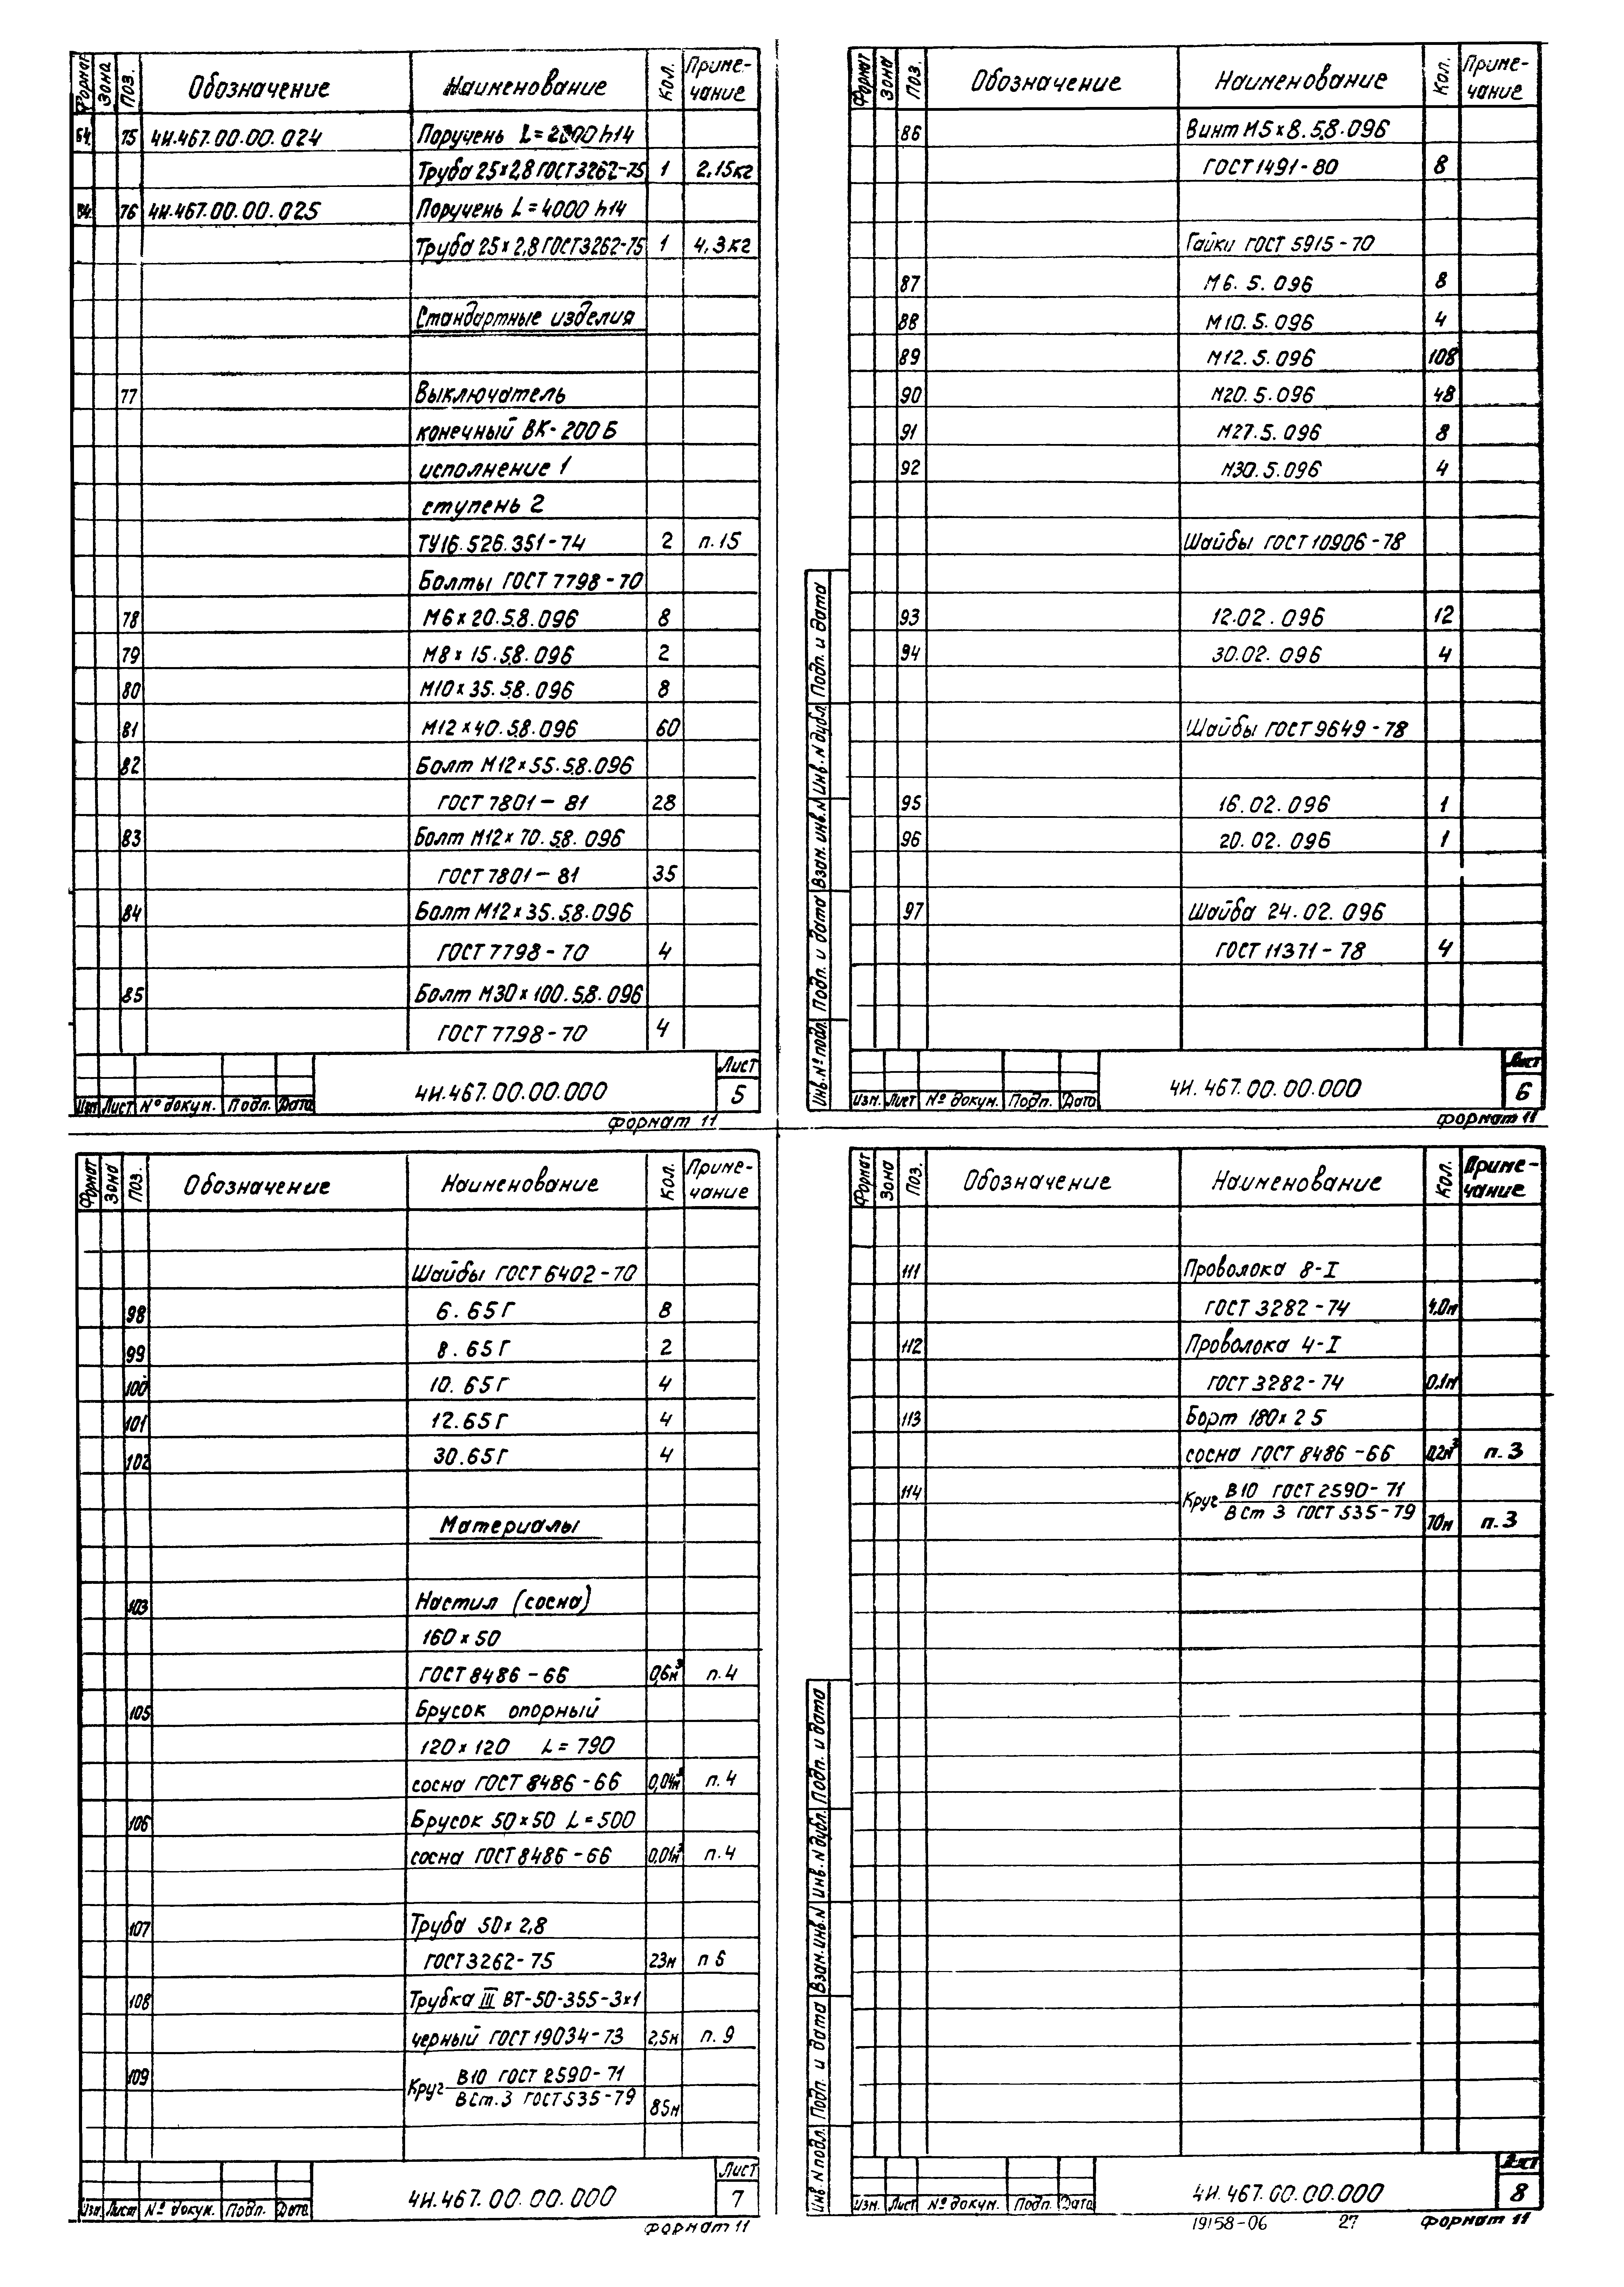 Формат Зона Поз. Обозначение Наименование Кол. Приме-
чание
Б4. 75 4И.467.00.00.024 Поручень L=2000 h14
Труба 25×2,8 ГОСТ3262-75 1 2,15кг
Б4. 76 4И.467.00.00.025 Поручень L=4000 h14
Труба 25×2,8 ГОСТ3262-75 1 4,3кг
Стандартные изделия
77 Выключатель
конечный ВК-200Б
исполнение 1
ступень 2
ТУ16.526.351-74 2 п.15
Болты ГОСТ 7798-70
78 М6×20.58.096 8
79 М8×15.58.096 2
80 М10×35.58.096 8
81 М12×40.58.096 60
82 Болт М12×55.58.096
ГОСТ 7801-81 28
83 Болт М12×70.58.096
ГОСТ 7801-81 35
84 Болт М12×35.58.096
ГОСТ 7798-70 4
85 Болт М30×100.58.096
ГОСТ 7798-70 4
Изм. Лист № докум. Подп. Дата 4И.467.00.00.000 Лист 5
Формат 11
Формат Зона Поз. Обозначение Наименование Кол. Приме-
чание
86 Винт М5×8.58.096
ГОСТ 1491-80 8
Гайки ГОСТ 5915-70
87 М6.5.096 8
88 М10.5.096 4
89 М12.5.096 108
90 М20.5.096 48
91 М27.5.096 8
92 М30.5.096 4
Шайбы ГОСТ 10906-78
93 12.02.096 12
94 30.02.096 4
Шайбы ГОСТ 9649-78
95 16.02.096 1
96 20.02.096 1
97 Шайба 24.02.096
ГОСТ 11371-78 4
Инв.№ подл. Подп. и дата Взам. инв.N Инв.N дубл. Подп. и дата
Изм. Лист № докум. Подп. Дата 4И.467.00.00.000 Лист 6
Формат 11
Формат Зона Поз. Обозначение Наименование Кол. Приме-
чание
Шайбы ГОСТ 6402-70
98 6.65Г 8
99 8.65Г 2
100 10.65Г 4
101 12.65Г 4
102 30.65Г 4
Материалы
103 Настил (сосна)
160×50
ГОСТ 8486-66 0,6м³ п.4
105 Брусок опорный
120×120 L=790
сосна ГОСТ 8486-66 0,04м³ п.4
106 Брусок 50×50 L=500
сосна ГОСТ 8486-66 0,01м³ п.4
107 Труба 50×2,8
ГОСТ3262-75 23м п 6
108 Трубка III ВТ-50-355-3×1
черный ГОСТ 19034-73 2,5м п.9
109 Круг В10 ГОСТ 2590-71
ВСт.3 ГОСТ535-79 85м
Изм. Лист № докум. Подп. Дата 4И.467.00.00.000 Лист 7
Формат 11
Формат Зона Поз. Обозначение Наименование Кол. Приме-
чание
111 Проволока 8-I
ГОСТ 3282-74 4,0м
112 Проволока 4-I
ГОСТ 3282-74 0,1м
113 Борт 180×25
сосна ГОСТ 8486-66 0,2м³ п.3
114 Круг В10 ГОСТ 2590-71
ВСт 3 ГОСТ 535-79 70м п.3
Инв.N подл. Подп. и дата Взам.инв.N Инв.N дубл. Подп. и дата
Изм. Лист № докум. Подп. Дата 4И.467.00.00.000 Лист 8
19158-06 27 Формат 11